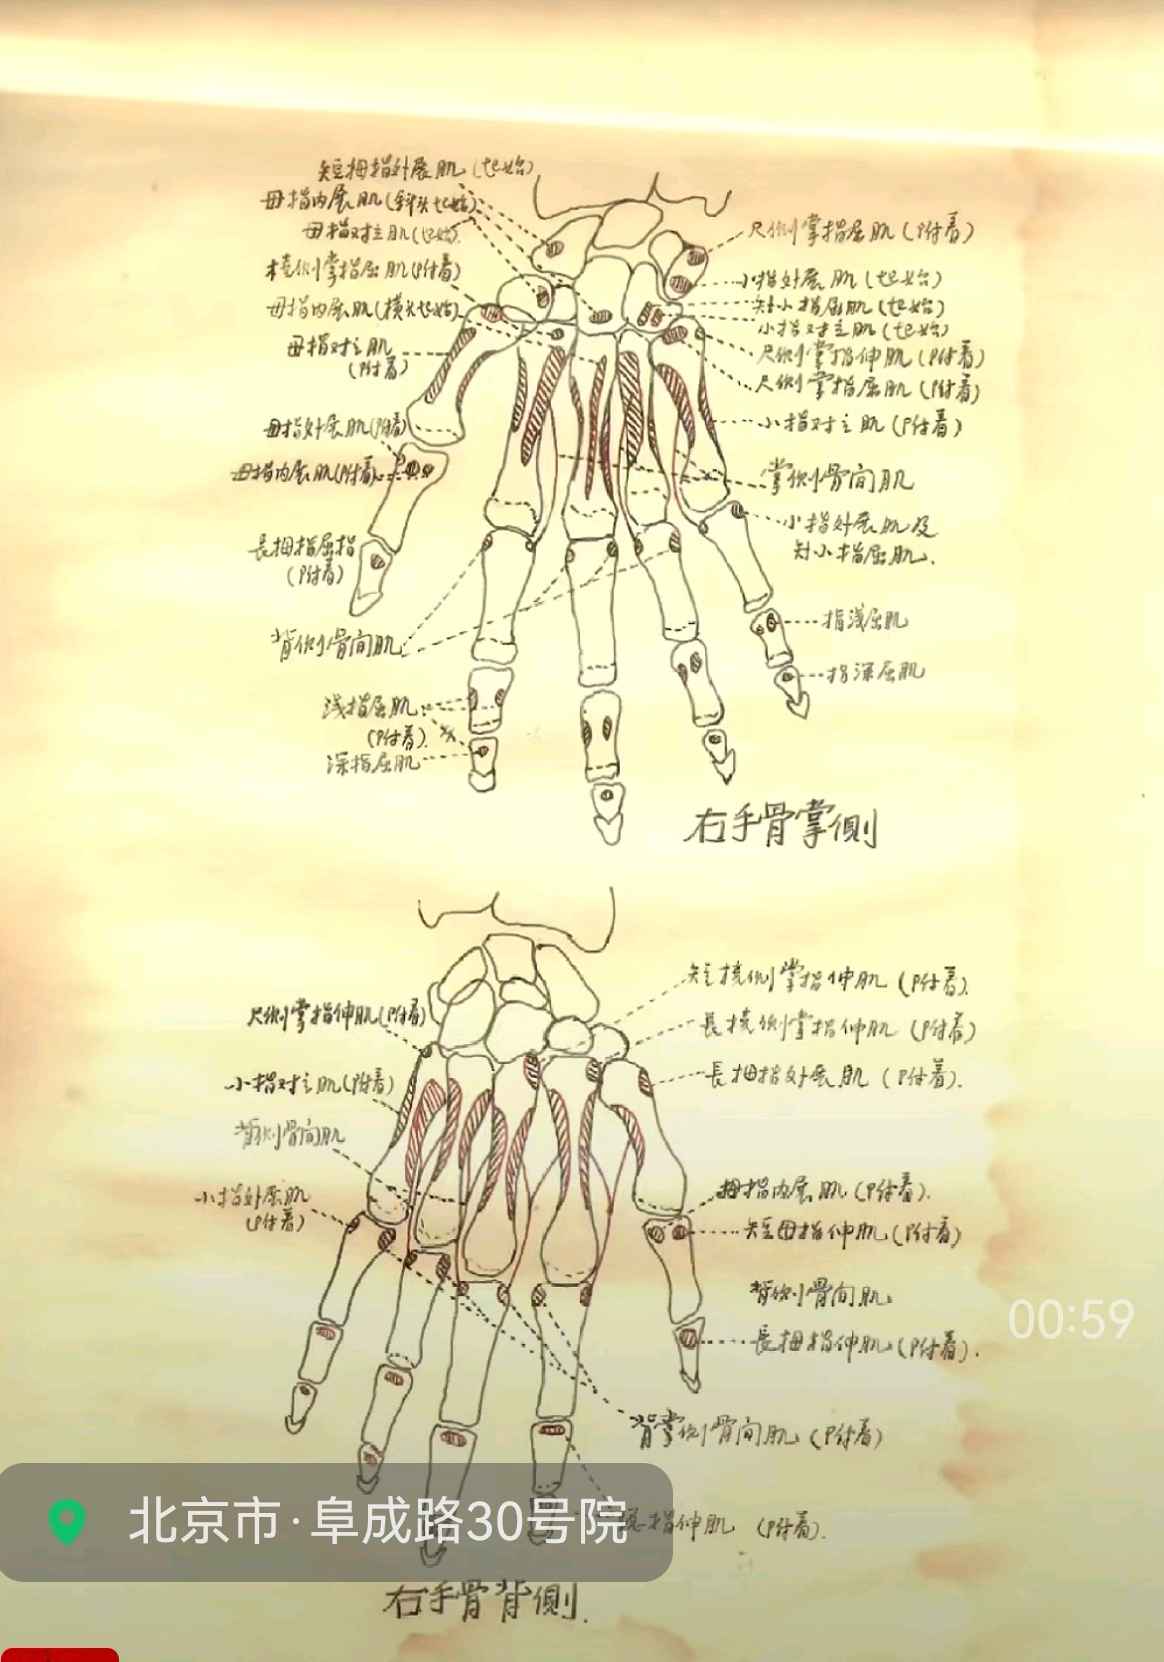 短拇指外展肌(起始)
母指内展肌(斜头起始)
母指对立肌(起始)
桡侧掌指屈肌(附着)
母指内展肌(横头起始)
母指对立肌
(附着)
母指外展肌(附着)
母指内展肌(附着)
長拇指屈指
(附着)
背侧骨间肌
浅指屈肌
(附着)
深指屈肌
尺侧掌指屈肌(附着)
小指外展肌(起始)
短小指屈肌(起始)
小指对立肌(起始)
尺侧掌指伸肌(附着)
尺侧掌指屈肌(附着)
小指对立肌(附着)
掌侧骨间肌
小指外展肌及
短小指屈肌.
指浅屈肌
指深屈肌
右手骨掌側
尺侧掌指伸肌(附着)
小指对立肌(附着)
背侧骨间肌
小指外展肌
(附着)
短桡侧掌指伸肌(附着)
長桡侧掌指伸肌(附着)
長拇指外展肌(附着).
拇指内展肌(附着).
短母指伸肌(附着)
背侧骨间肌
長拇指伸肌(附着).
背掌侧骨间肌(附着)
指伸肌(附着).
右手骨背側.
00:59
北京市·阜成路30号院